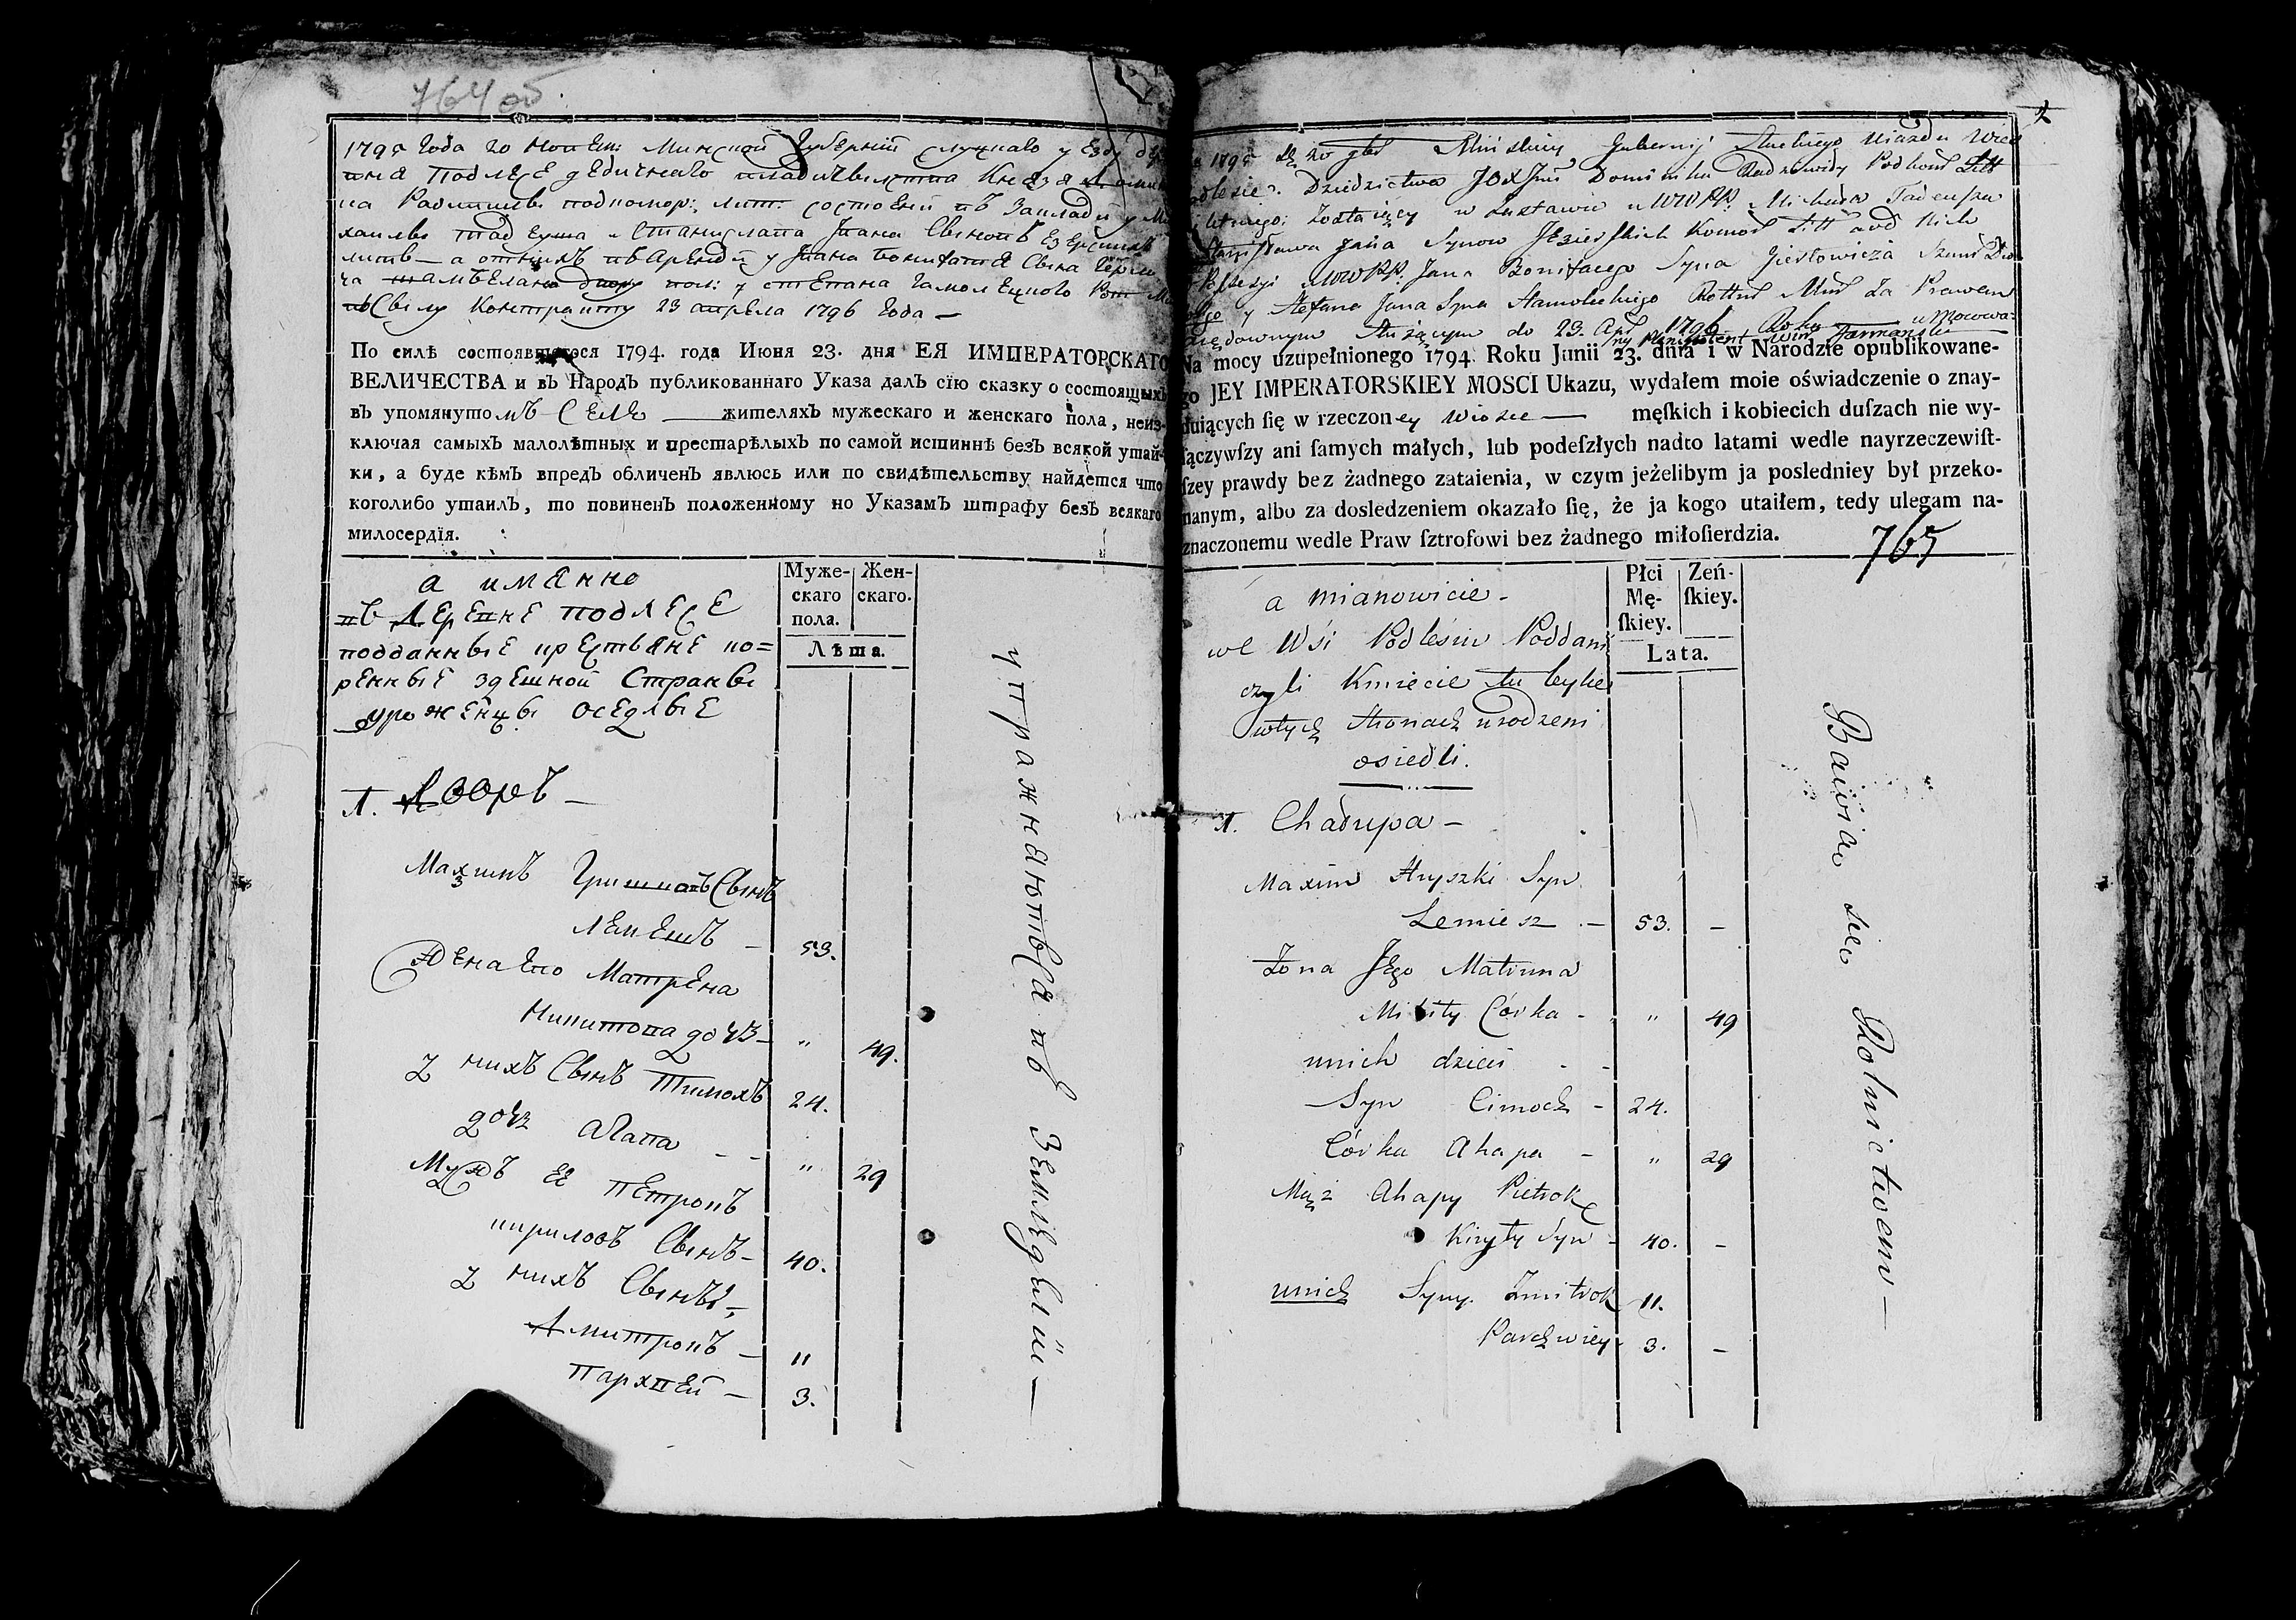 764 об
1795 года 20 Нопем: Минской Губерний Слуцкаго уезду
Подлесе дедичнаго Князя
на Радзивила подкомор: лит: состоений въ Закладй у
хаилы Тадеуша и Станислапа Іпана Сыновъ Езерских
а отныхъ въ Арендй у Іпана Бонифатя Сына
ча шамбелана двору пол: у Стефана Гамолецкого
по Силу Контракту 23 апреля 1796 Года —
По силѣ состоявшагося 1794. года Июня 23. дня ЕЯ ИМПЕРАТОРСКАГО
ВЕЛИЧЕСТВА и въ Народъ публикованнаго Указа далъ сїю сказку о состоящыхъ
въ упомянутомъ Селе — жителяхъ мужескаго и женскаго пола, неиз-
ключая самыхъ малолѣтныхъ и престарѣлыхъ по самой истиннѣ безъ всякой утай-
ки, а буде кѣмъ впредъ обличенъ явлюсь или по свидѣтельству найдется что
коголибо утаилъ, то повиненъ положенному но Указамъ штрафу безъ всякаго
милосердїя.
а имянно
въ Деревне Подлесе
подданные крестьяне ко=
ренные здешной Страны
уроженцы оседлые
Муже-
скаго
пола.
Жен-
скаго.
Лѣта.
1. Дворъ —
Махзимъ Гришковъ Сынъ
Лемешъ — 53.
Жена Его Матрена
Никитова дочь — " 49.
У нихъ Сынъ Тимохъ 24.
дочь Агапа - - " 29
Мужъ ее Петрокъ
Кириловъ Сынъ — 40.
У нихъ Сыны —
Дмитрокъ — 11
Пархвей — 3.
упражняются въ Земледелии —
2
1795 20 9bra Minskiey Gubernij Sluckiego Uiazdu
Podlesie. Dziedzictwa JOXJmci Dominika Radziwiły Podkom Litt
Zostaiący w Zastawie u WWPP. Michała Tadeusza
Stanisława Jana Synow Jezierskich Komor Litt a od Nich
w Possesyi WWPP. Jana Bonifacego Syna Gierłowicza
y Stefana Jana Syna Hamoleckiego Za Prawem
Aręndownym Służącym do 23. Apr 1796 Roku
Na mocy uzupełnionego 1794. Roku Junii 23. dnia i w Narodzie opublikowane-
go JEY IMPERATORSKIEY MOSCI Ukazu, wydałem moie oświadczenie o znay-
duiących ſię w rzeczoney Wiosce — męſkich i kobiecich duſzach nie wy-
łączywſzy ani ſamych małych, lub podeſzłych nadto latami wedle nayrzeczewiſt-
ſzey prawdy bez żadnego zataienia, w czym jeżelibym ja posledniey był przeko-
nanym, albo za dosledzeniem okazało ſię, że ja kogo utaiłem, tedy ulegam na-
znaczonemu wedle Praw ſztrofowi bez żadnego miłoſierdzia.
765
a mianowicie -
we Wśi Podleśiu Poddani
czyli Kmiecie tu
w tych Stronach urodzeni
osiedli.
Płci
Mę-
ſkiey.
Zeń-
ſkiey.
Lata.
1. Chałupa —
Maxim Hryszki Syn
Lemiesz — 53. —
Żona Jego Matruna
Mikity Córka - " 49
u nich dzieci - -
Syn Cimoch - 24.
Córka Ahapa - " 29
Mąż Ahapy Pietrok
Kiryły Syn - 40. —
u nich Syny. Zmitrok 11.
Parchwiey 3. —
Bawią się Rolnictwem —